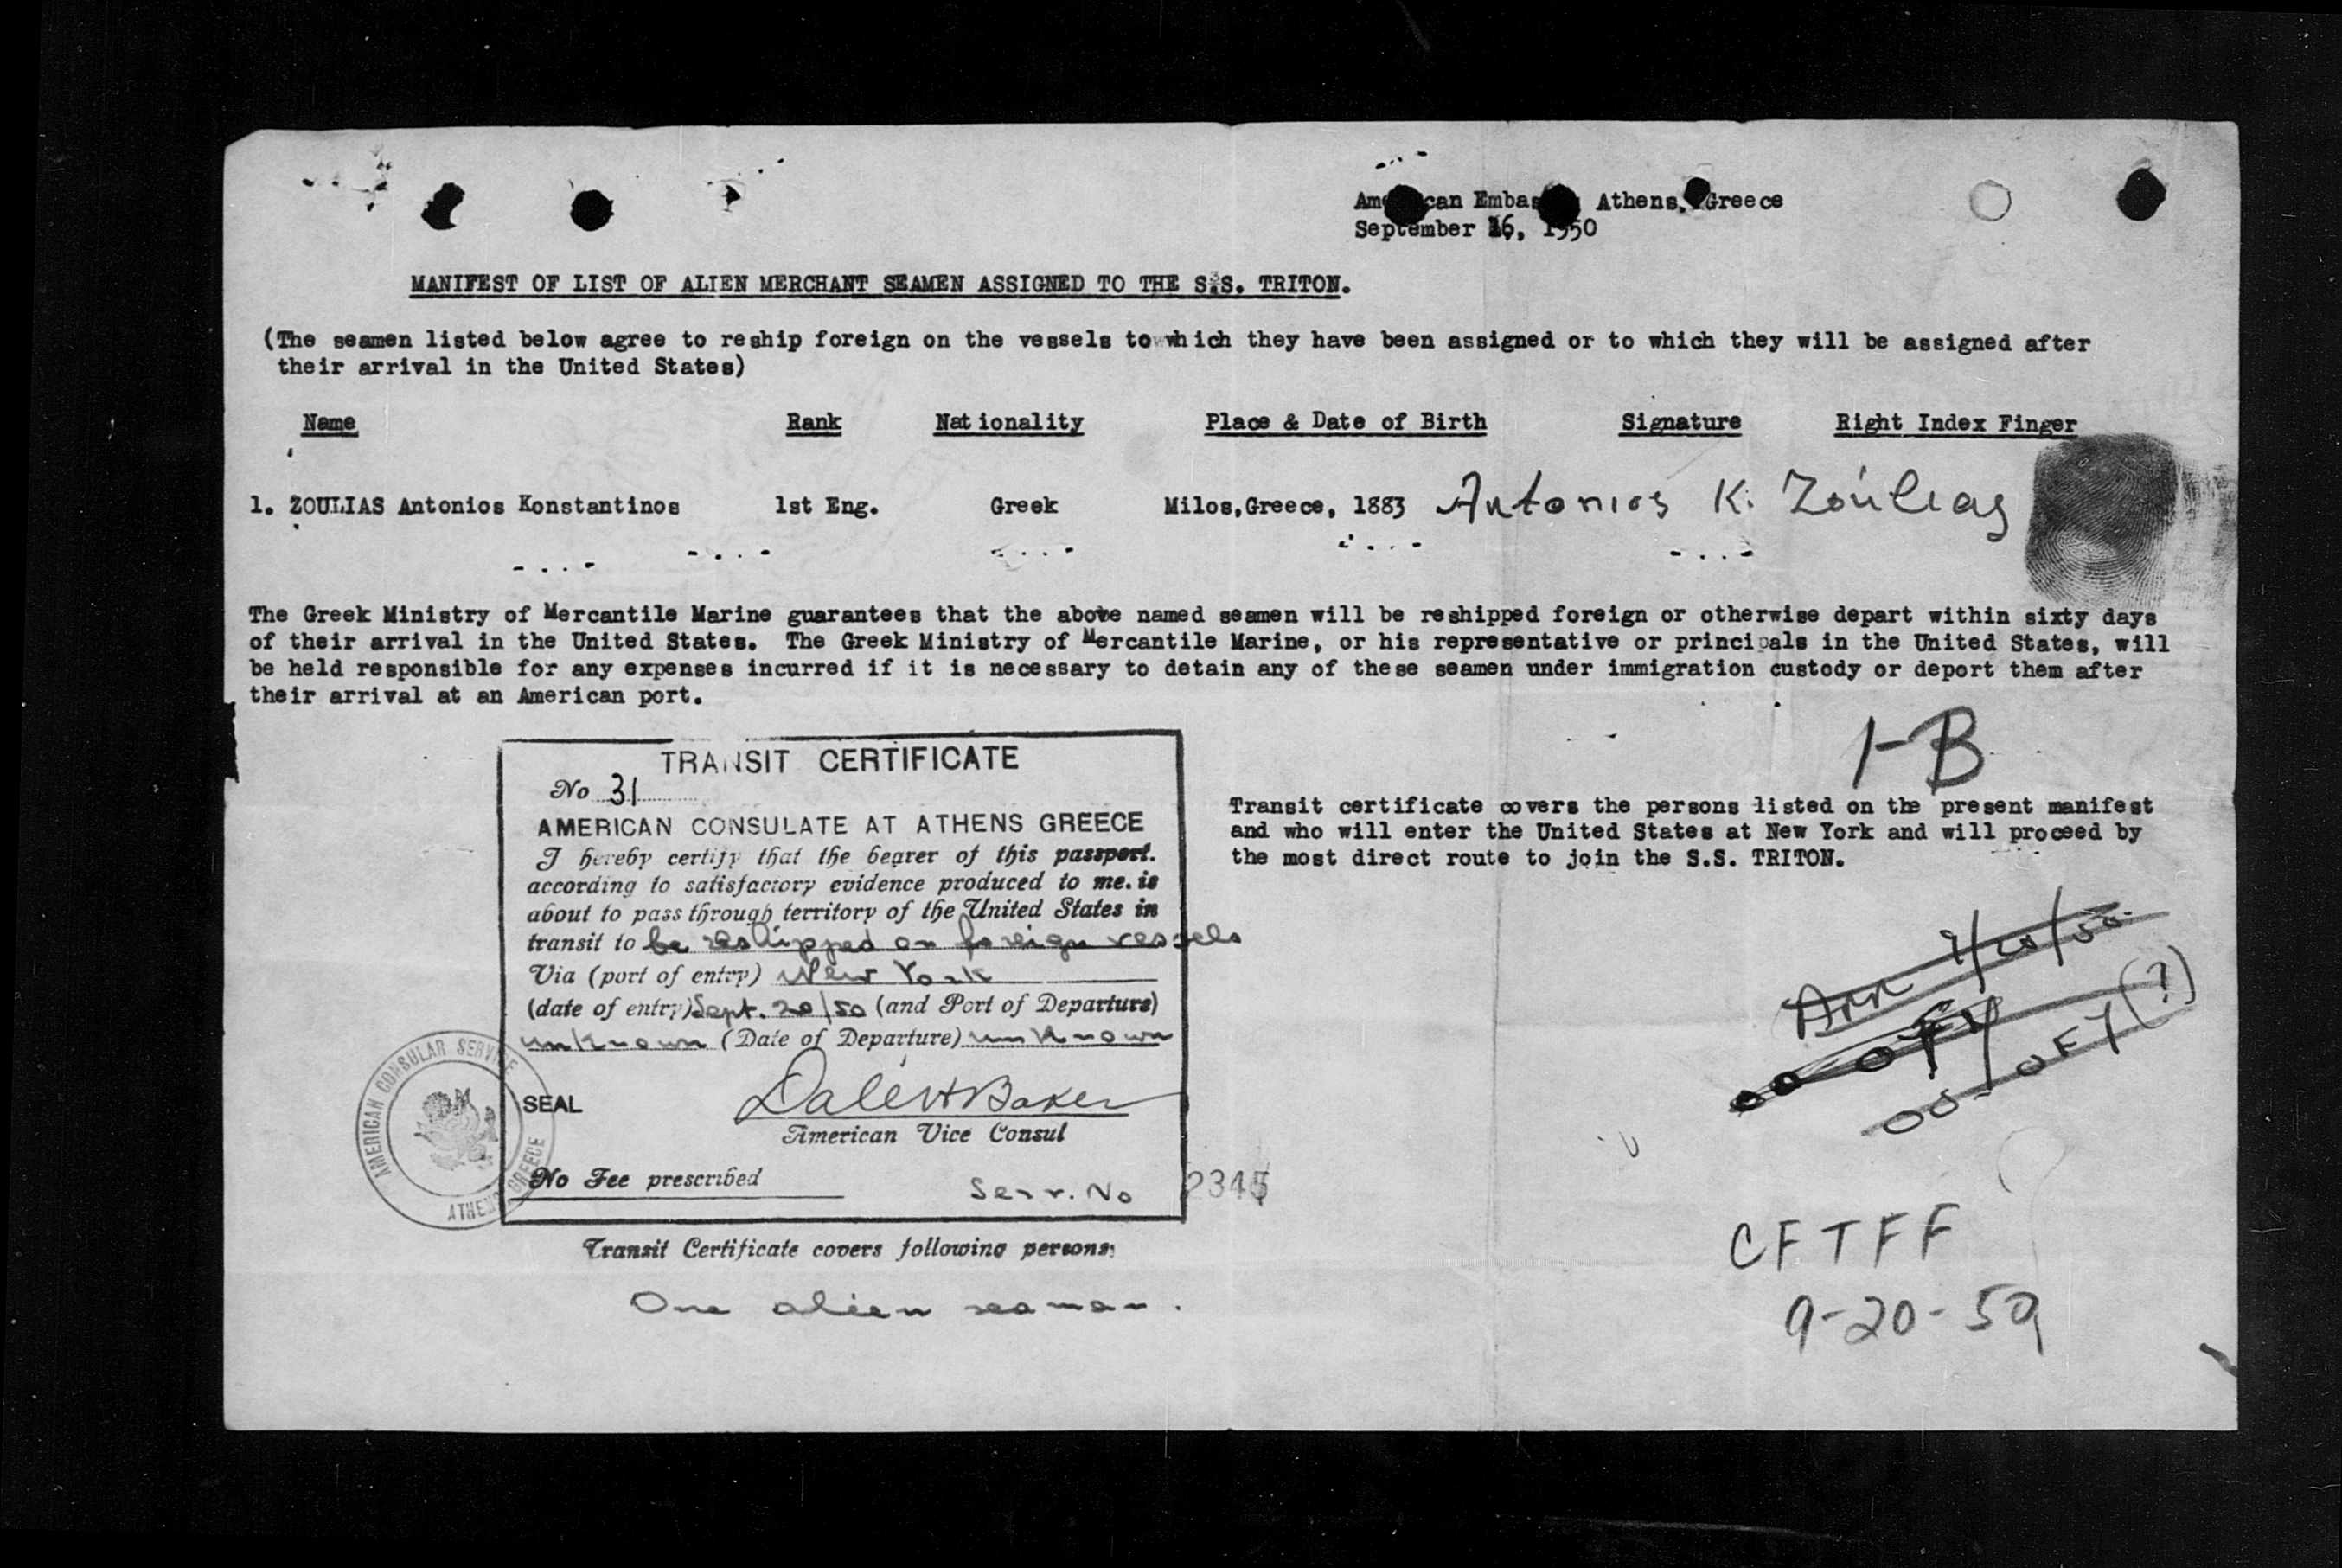 American Embassy Athens, Greece
September 16, 1950
MANIFEST OF LIST OF ALIEN MERCHANT SEAMEN ASSIGNED TO THE S.S. TRITON.
(The seamen listed below agree to reship foreign on the vessels to which they have been assigned or to which they will be assigned after
their arrival in the United States)
Name Rank Nationality Place & Date of Birth Signature Right Index Finger
1. ZOULIAS Antonios Konstantinos 1st Eng. Greek Milos,Greece, 1883 Antonios K. Zoúlias
The Greek Ministry of Mercantile Marine guarantees that the above named seamen will be reshipped foreign or otherwise depart within sixty days
of their arrival in the United States. The Greek Ministry of Mercantile Marine, or his representative or principals in the United States, will
be held responsible for any expenses incurred if it is necessary to detain any of these seamen under immigration custody or deport them after
their arrival at an American port.
1-B
TRANSIT CERTIFICATE
No 31
AMERICAN CONSULATE AT ATHENS GREECE
I hereby certify that the bearer of this passport.
according to satisfactory evidence produced to me. is
about to pass through territory of the United States in
transit to be reshipped on foreign vessels
Via (port of entry) New York
(date of entry) Sept. 20/50 (and Port of Departure)
unknown (Date of Departure) unknown
SEAL
Dale H Baker
American Vice Consul
No Fee prescribed
Serv. No 2345
AMERICAN CONSULAR SERVICE
ATHENS GREECE
Transit Certificate covers following persons:
One alien seaman.
Transit certificate covers the persons listed on the present manifest
and who will enter the United States at New York and will proceed by
the most direct route to join the S.S. TRITON.
Arr 9/20/50
OO-OFY(?)
CFTFF
9-20-50